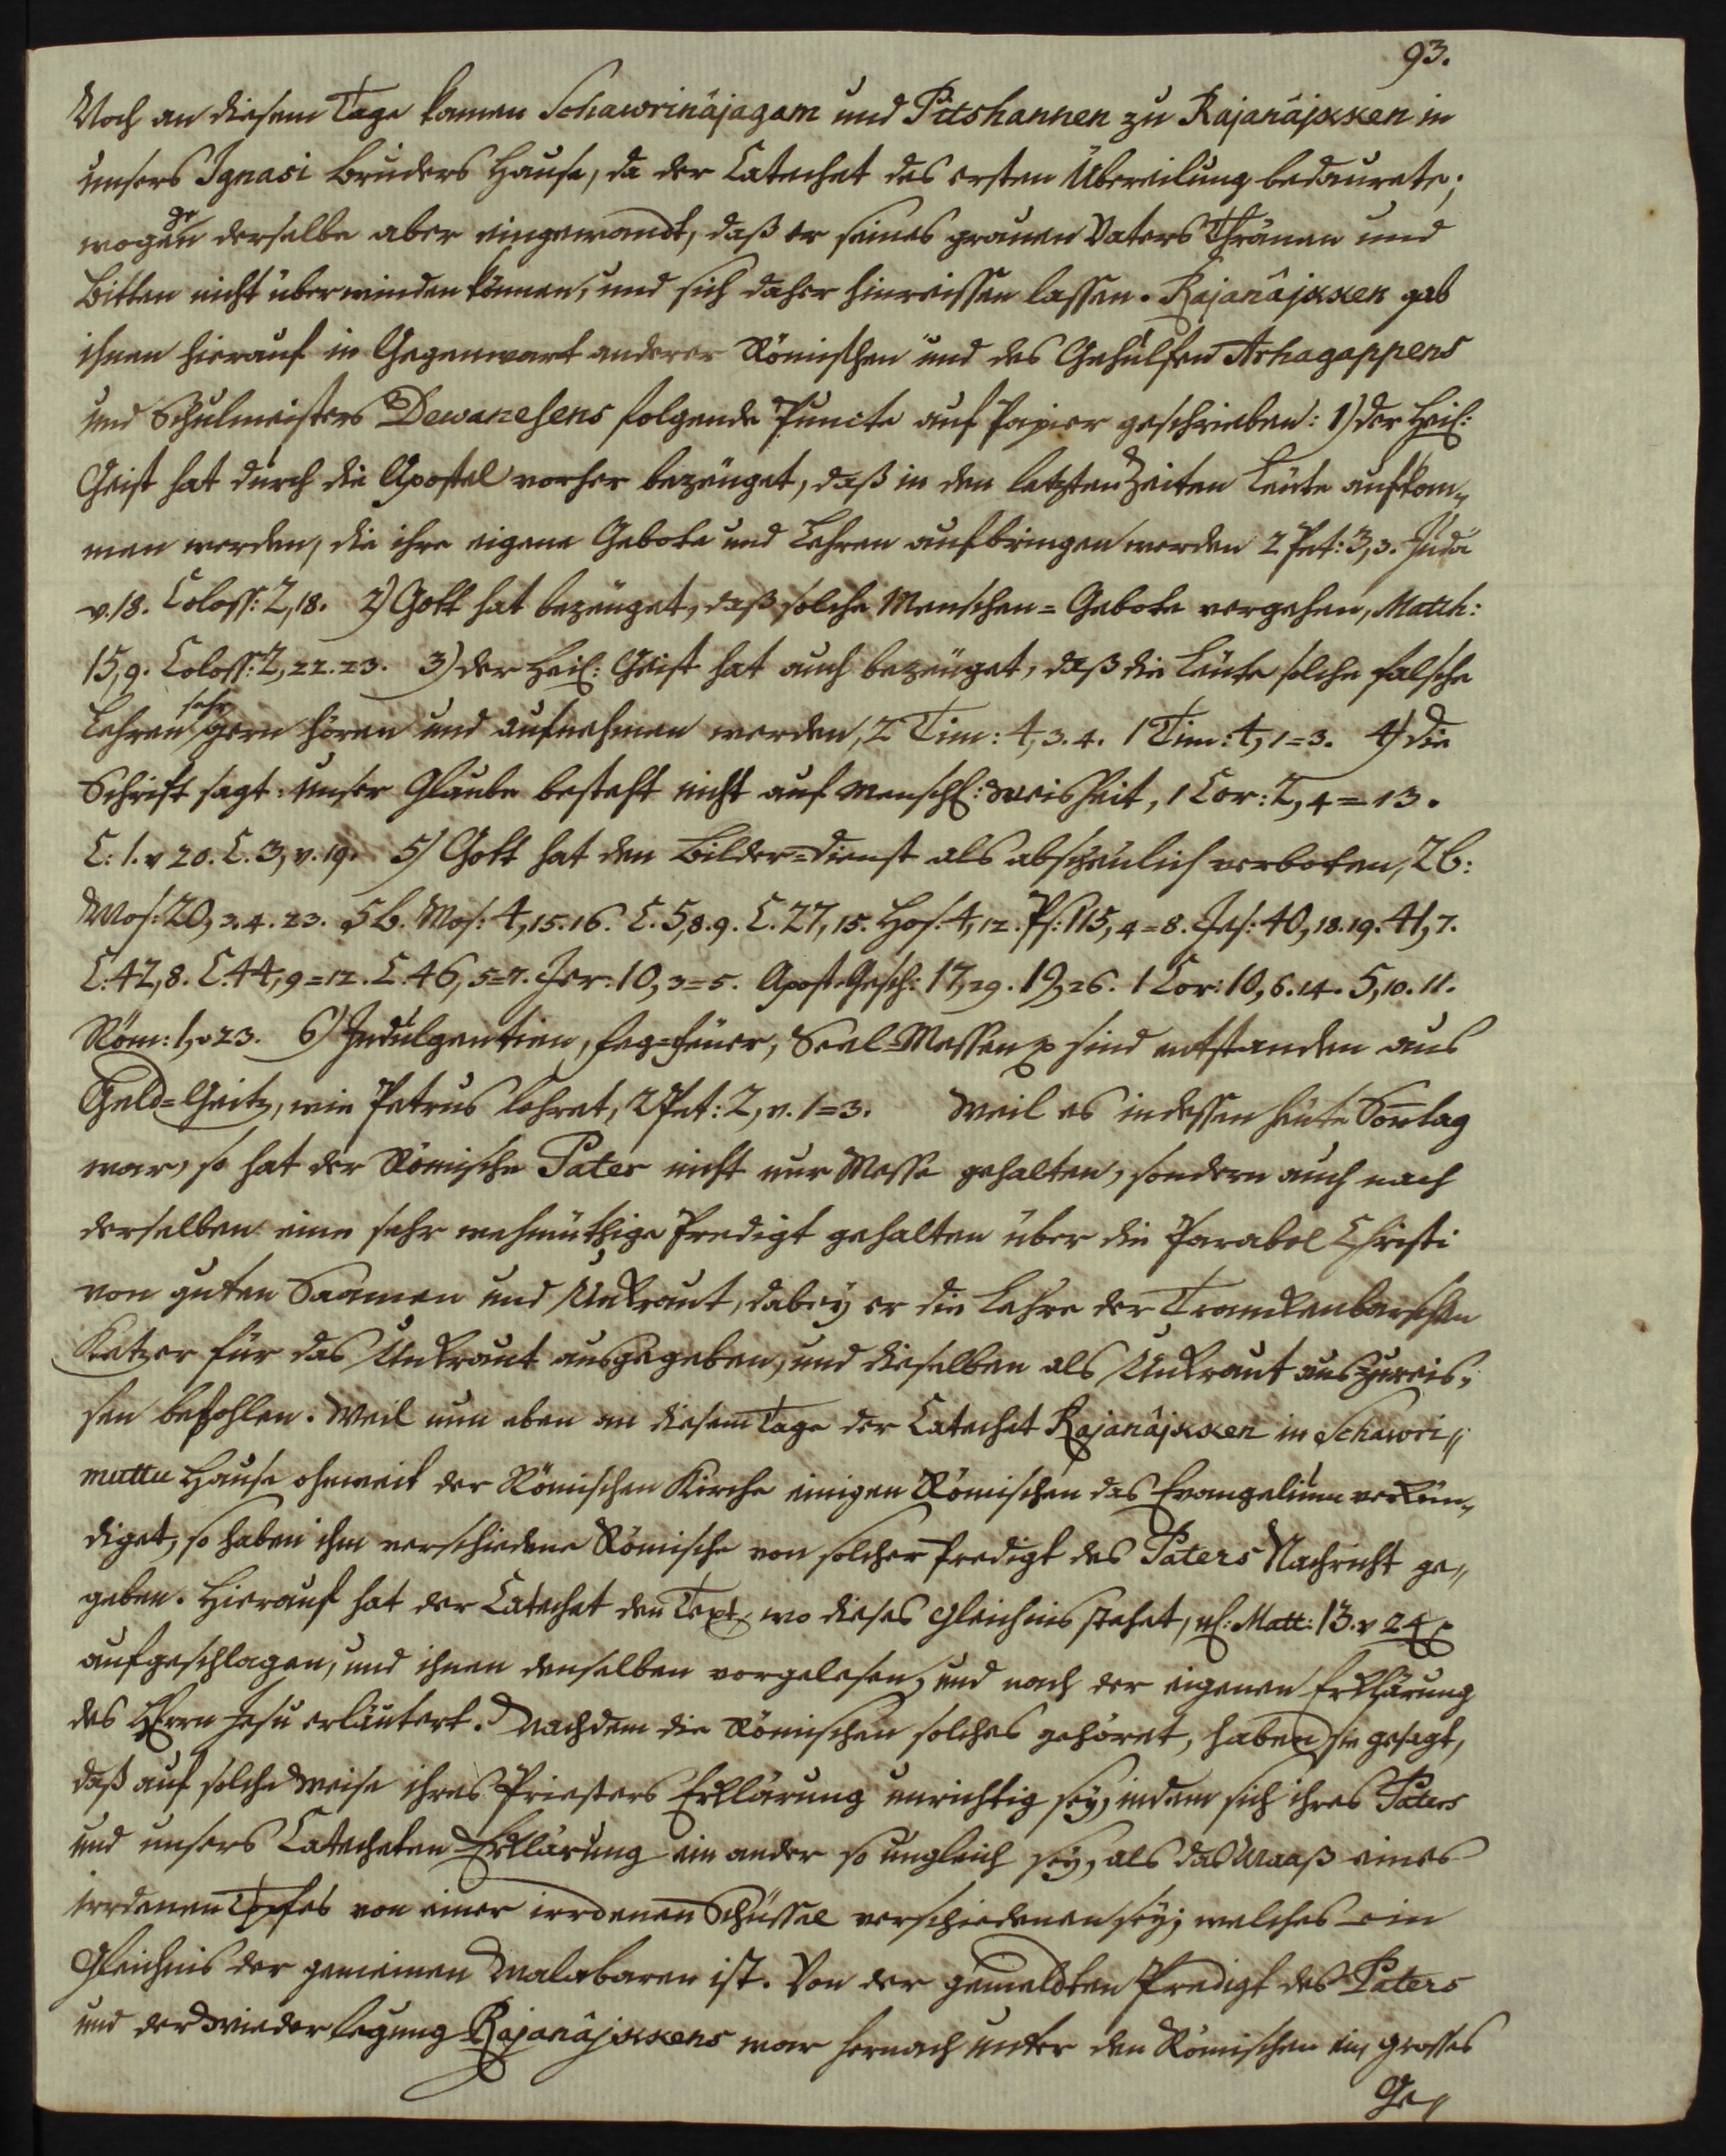 93.
Noch an diesem Tage kamen Schawrinâjagam und Pitshannen zu Rajanâjkken in
unsers Ignasi Bruders Hause, da der Catechet des ersten Übereilung bedaurete;
wogegen derselbe aber eingewandt, daß er seines grauen Vaters Thränen und
Bitten nicht überwinden können, und sich daher hinreissen lassen. Rajanâjkken gab
ihnen hierauf in Gegenwart anderer Römischen und des Gehülfen Arhagappens
und Schulmeisters Dewanesens folgende Puncte auf Papier geschrieben: 1) der Heil:
Geist hat durch die Apostel vorher bezeuget, daß in den letzten Zeiten Leute aufkom„
men werden, die ihre eigene Gebote und Lehren aufbringen werden 2 Pet: 3, 3. Judä
v. 18. Coloss: 2, 18. 2) Gott hat bezeuget, daß solche Menschen=Gebote vergehen, Matth:
15, 9. Coloss: 2, 22. 23. 3) der Heil: Geist hat auch bezeuget, daß die Leute solche falsche
Lehren sehr gern hören und aufnehmen werden, 2 Tim: 4, 3. 4. 1 Tim: 4, 1=3. 4) die
Schrift sagt: unser Glaube besteht nicht auf menschl: Weisheit, 1 Cor: 2, 4=13.
C: 1. v 20. C. 3, v. 19. 5) Gott hat den Bilder=dienst als abscheulich verboten, 2 B:
Mos: 20, 3. 4. 23. 5 B. Mos: 4, 15. 16. C. 5, 8. 9. C. 27, 15. Hos: 4, 12. Ps: 115, 4=8. Jes: 40, 18. 19. 41, 7.
C. 42, 8. C. 44, 9=12. C. 46, 5=7. Jer: 10, 3=5. Apost. Gesch: 17, 29. 19, 26. 1 Cor: 10, 6. 14. 5, 10. 11.
Röm: 1, v 23. 6) Indulgentien, Feg=feuer, Seel=Messen p sind entstanden aus
Geld=Geitz, wie Petrus lehret, 2 Pet: 2, v. 1=3. Weil es indessen heute Sontag
war, so hat der Römische Pater nicht nur Messe gehalten, sondern auch nach
derselben eine sehr wehmüthige Predigt gehalten über die Parabel Christi
von guten Saamen und Unkraut, dabey er die Lehre der Trankenbarschen
Ketzer für das Unkraut ausgegeben, und dieselben als Unkraut auszureis„
sen befohlen. Weil nun eben an diesem Tage der Catechet Rajanâjkken in Schawri„
muttu Hause ohnweit der Römischen Kirche einigen Römischen das Evangelium verkün„
diget, so haben ihm verschiedene Römische von solcher Predigt des Paters Nachricht ge„
geben. Hierauf hat der Catechet den Text, wo dieses Gleichnis stehet, nl: Matt: 13. v 24 p
aufgeschlagen, und ihnen denselben vorgelesen, und nach der eigenen Erklärung
des HErrn Jesu erläutert. Nachdem die Römischen solches gehöret, haben sie gesagt,
daß auf solche Weise ihres Priesters Erklärung unrichtig sey, indem sich ihres Paters
und unsers Catecheten Erklärung ein ander so ungleich sey, als das Maaß eines
irrdenen Topfes von einer irrdenen Schüssel verschiedenen sey; welches ein
Gleichnis der gemeinen Malabaren ist. Von der gemeldten Predigt des Paters
und der Wiederlegung Rajanâjkkens war hernach unter den Römischen ein grosses
Ge„